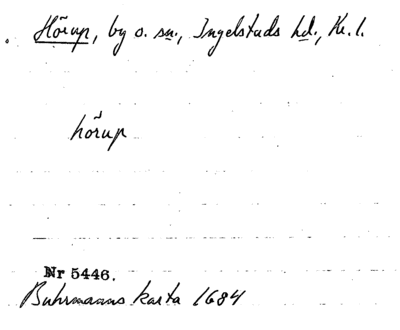 Hörup, by o. sn., Ingelstads hd., Kr. l.
hörup
Nr 5446.
Buhrmanns karta 1684